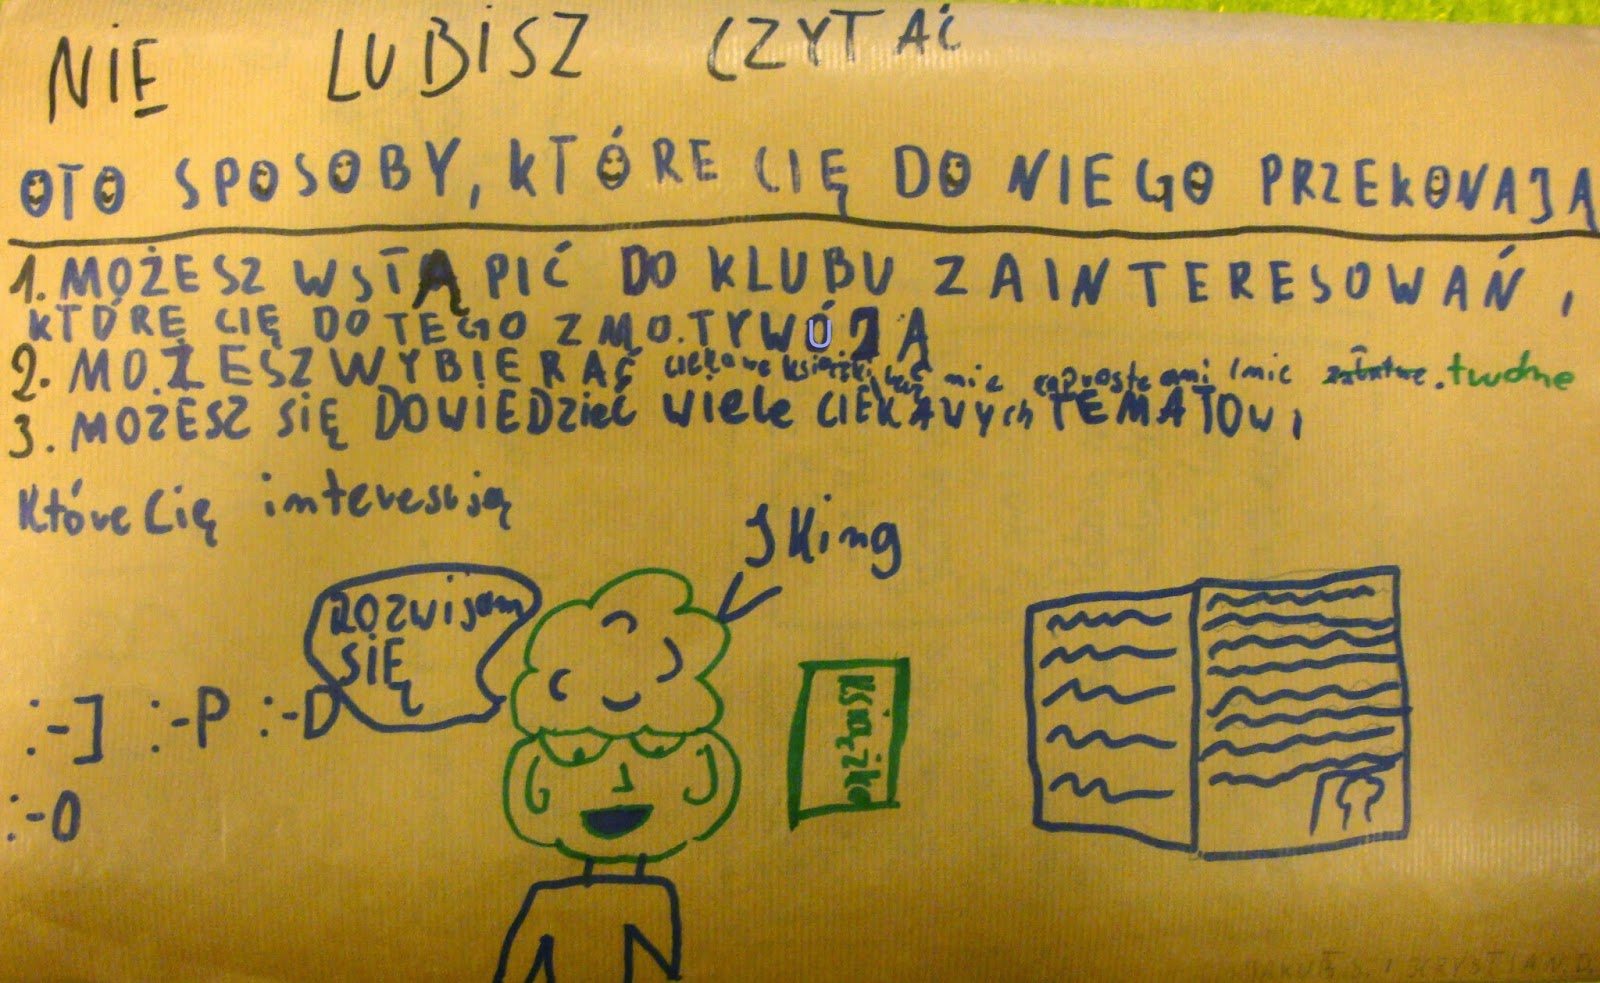 NIE LUBISZ CZYTAĆ
OTO SPOSOBY, KTÓRE CIĘ DO NIEGO PRZEKONAJĄ
1. MOŻESZ WSTĄPIĆ DO KLUBU ZAINTERESOWAŃ,
KTÓRE CIĘ DO TEGO ZMOTYWÓJĄ
2. MOŻESZ WYBIERAĆ ciekawe książki, też nie zaproste ani nie trudne
3. MOŻESZ SIĘ DOWIEDZieć wiele CIEKAWYch TEMATÓW,
Które Cię interesują
JKing
ROZWIJAM
SIĘ
:-] :-P :-D
:-O
książka
JAKUB S. I KRYSTIAN D.